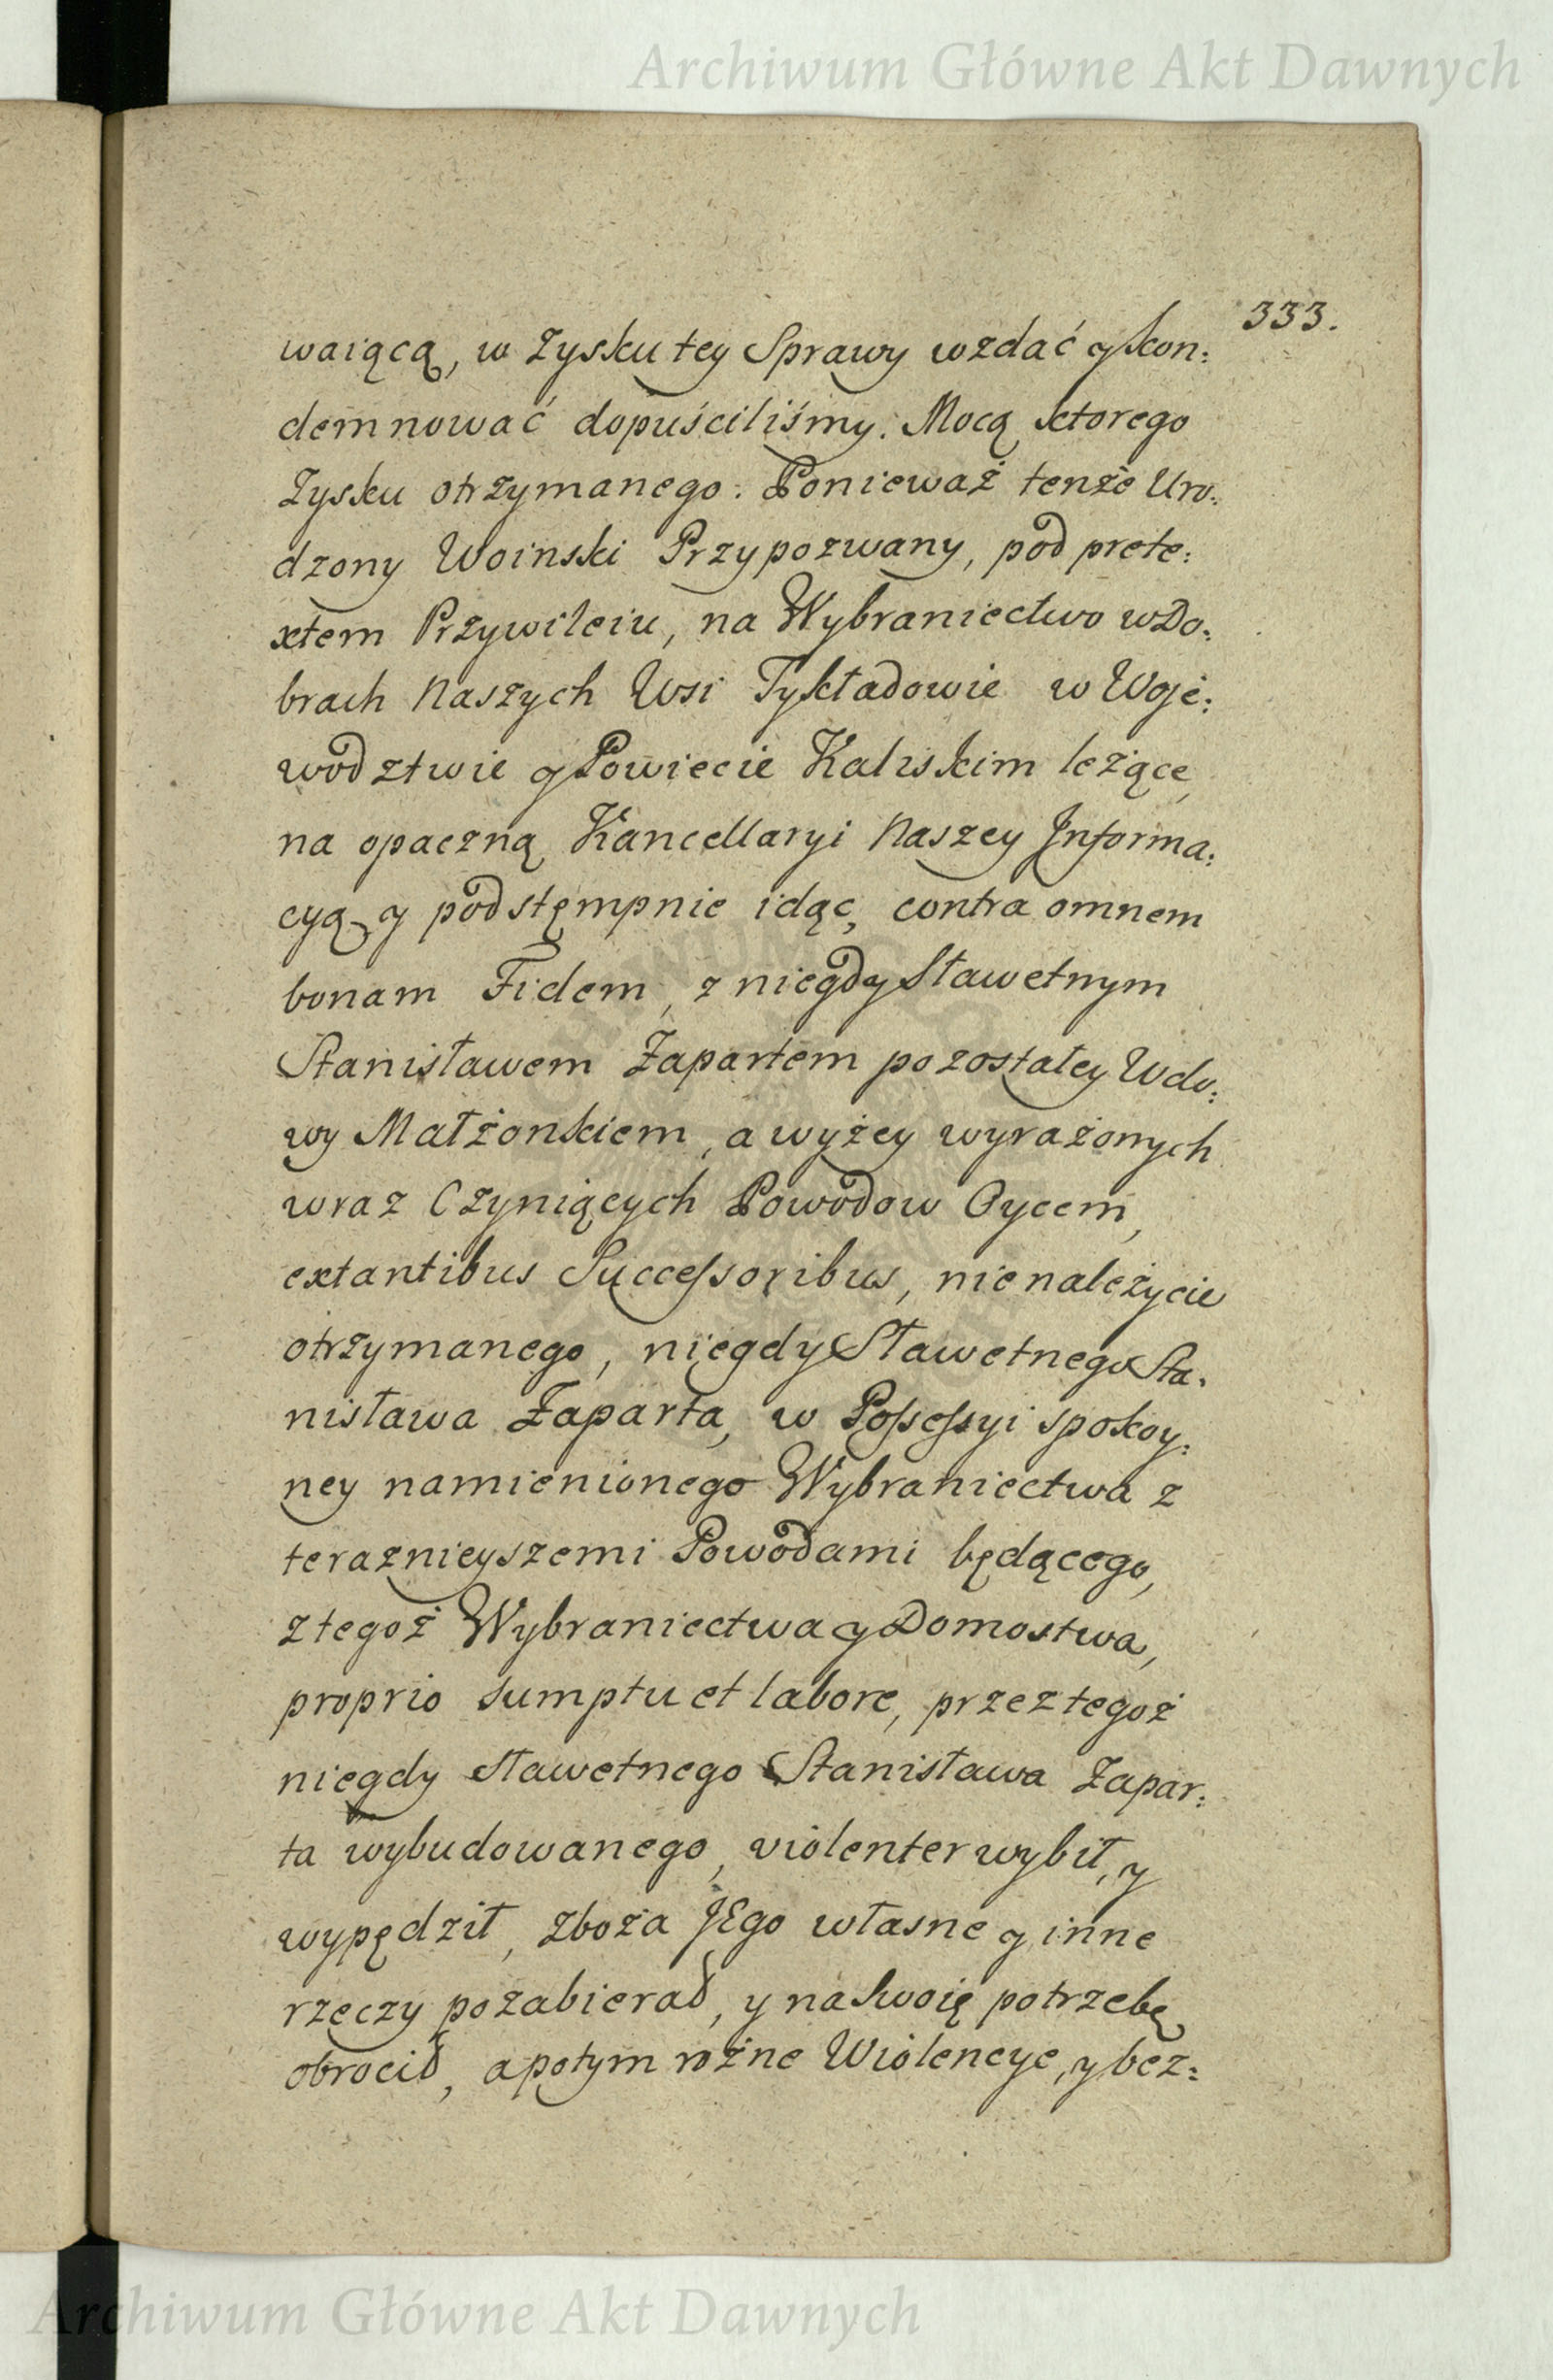 Archiwum Główne Akt Dawnych
333.
waiącą, w Zysku tey Sprawy wzdać y kon:
demnować dopuściliśmy. Mocą ktorego
Zysku otrzymanego. Ponieważ tenże Uro:
dzony Woinski Przypozwany, pod prete:
xtem Przywileiu, na Wybraniectwo w Do:
brach Naszych Wsi Tykładowie w Woje:
wodztwie y Powiecie Kaliskim leżące,
na opaczną Kancellaryi Naszey Informa:
cyą y podstęmpnie idąc, contra omnem
bonam Fidem, z niegdy Sławetnym
Stanisławem Zapartem pozostałey Wdo:
wy Małżonkiem, a wyżey wyrażonych
wraz Czyniących Powodow Oycem,
extantibus Successoribus, nienależycie
otrzymanego, niegdy Sławetnego Sta:
nisława Zaparta, w Possessyi spokoy:
ney namienionego Wybraniectwa z
teraznieyszemi Powodami będącego,
z tegoż Wybraniectwa y Domostwa,
proprio sumptu et labore, przez tegoż
niegdy sławetnego Stanisława Zapar:
ta wybudowanego, violenter wybił, y
wypędził, zboża JEgo własne y inne
rzeczy pozabierał, y na swoię potrzebę
obrocił, a potym rożne Wiolencye, y bez:
Archiwum Główne Akt Dawnych